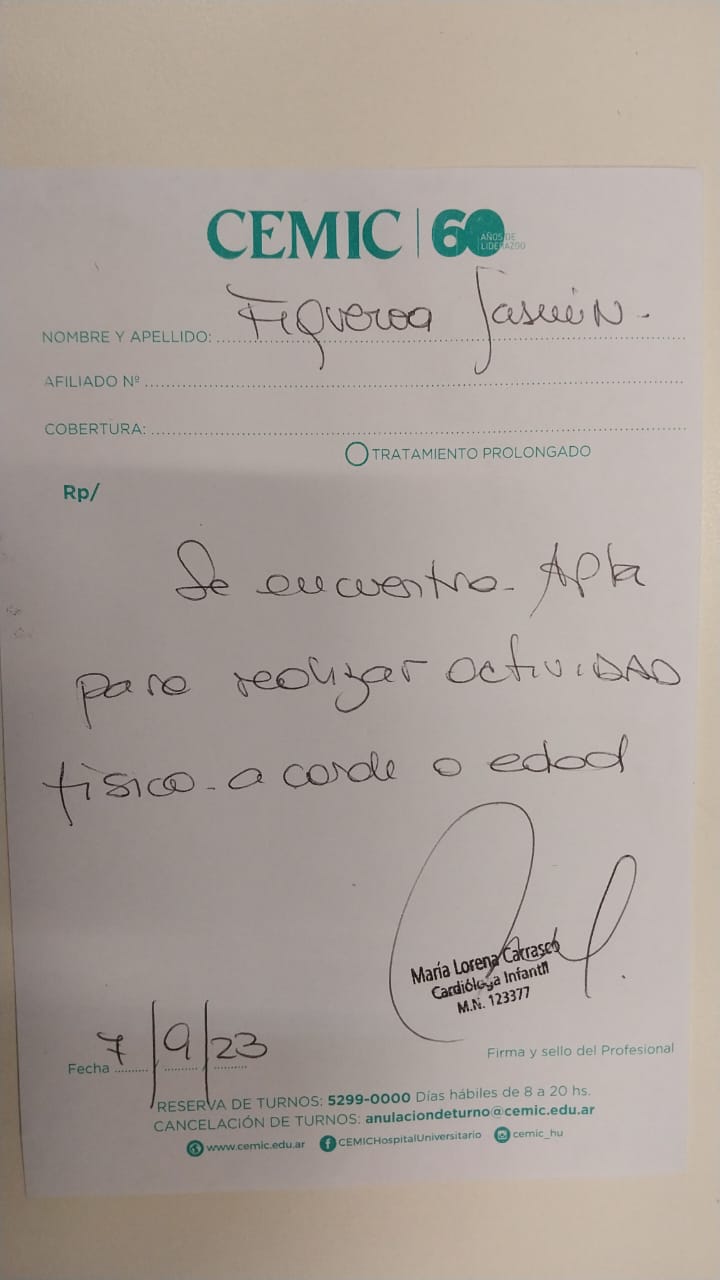 CEMIC | 60 AÑOS DE LIDERAZGO
NOMBRE Y APELLIDO: Figueroa Jasmin.
AFILIADO Nº
COBERTURA:
TRATAMIENTO PROLONGADO
Rp/
Se encuentra Apta
para realizar actividad
fisica acorde a edad
María Lorena Carrasco
Cardióloga Infantil
M.N. 123377
Firma y sello del Profesional
Fecha 7/9/23
RESERVA DE TURNOS: 5299-0000 Días hábiles de 8 a 20 hs.
CANCELACIÓN DE TURNOS: anulaciondeturno@cemic.edu.ar
www.cemic.edu.ar CEMICHospitalUniversitario cemic_hu